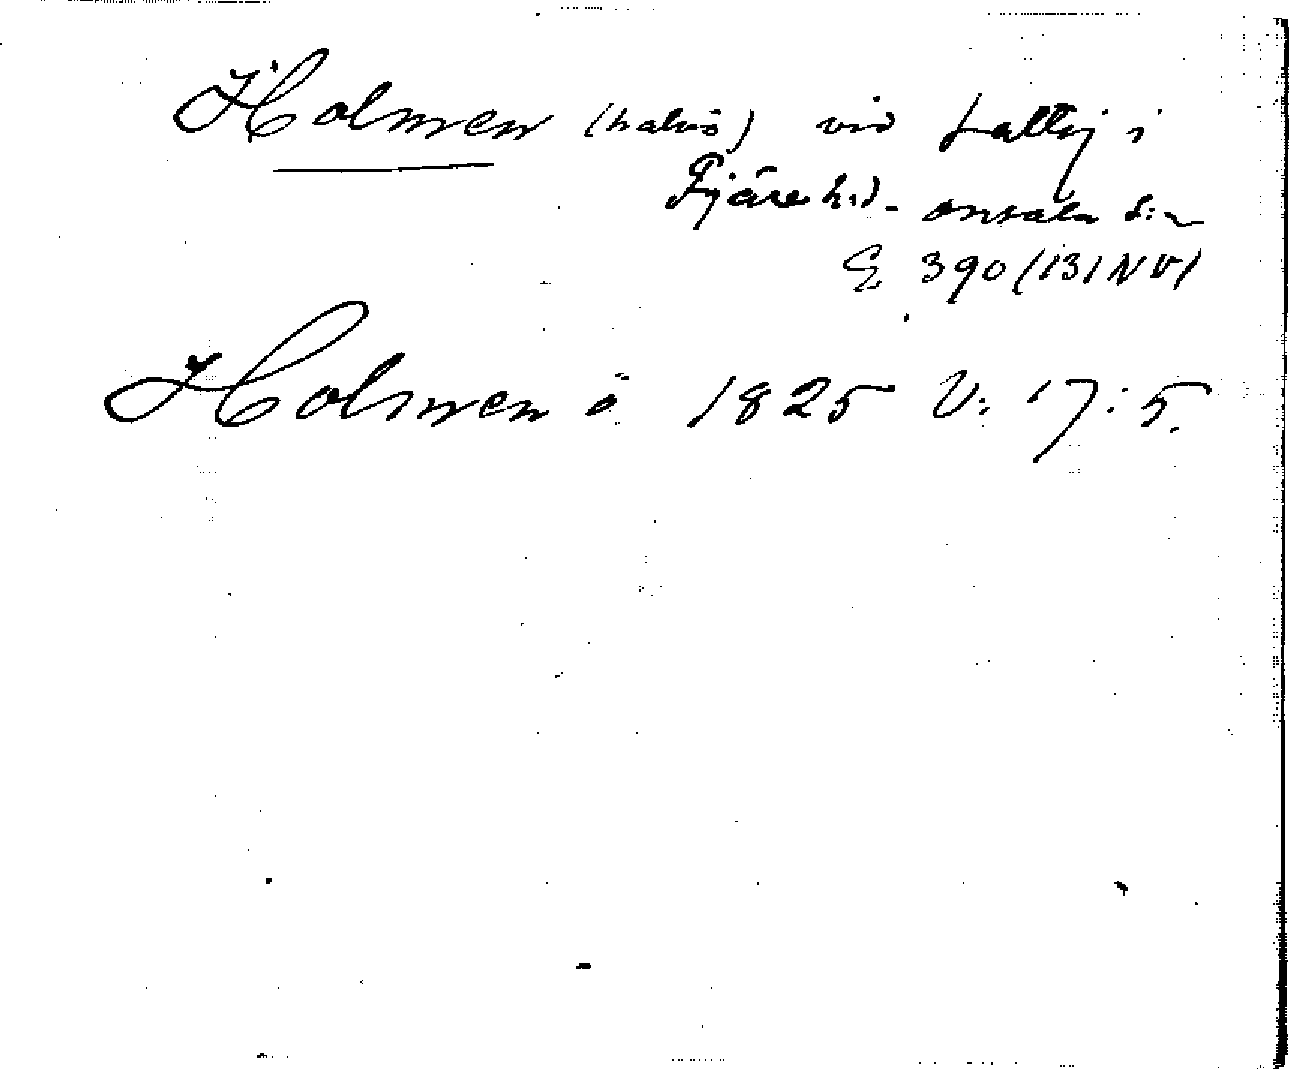 Holmen (halvö) vid i
Fjäre hd. Onsala s:n
E 390 (131 NV)
Holmen ö 1825 V: 17: 5.